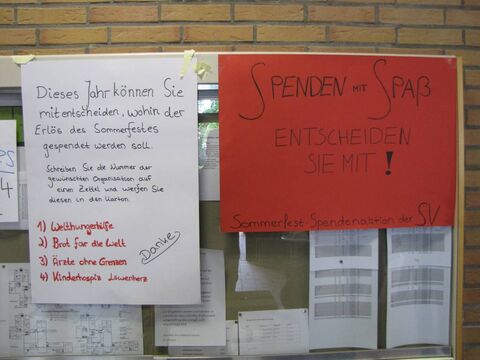 Dieses Jahr können Sie
mitentscheiden, wohin der
Erlös des Sommerfestes
gespendet werden soll.
Schreiben Sie die Nummer der
gewünschten Organisation auf
einen Zettel und werfen Sie
diesen in den Karton.
1) Welthungerhilfe
2) Brot für die Welt
3) Ärzte ohne Grenzen
4) Kinderhospiz Löwenherz
Danke
SPENDEN MIT SPAß
ENTSCHEIDEN
SIE MIT!
Sommerfest-Spendenaktion der SV